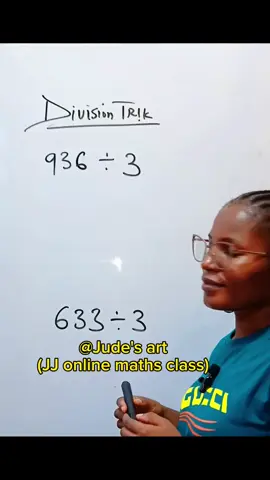 Division TRik
936 ÷ 3
633 ÷ 3
@Jude's art
(JJ online maths class)
GUCCI